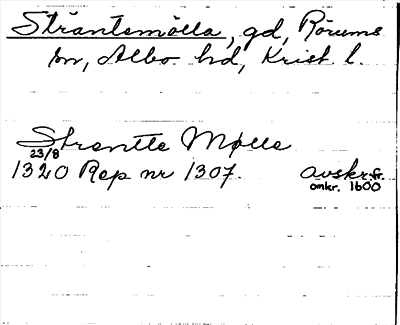 Strantemölla, gd, Rörums
sn, Albo hd, Krist l.
Strantte Mølle
23/8
1320 Rep nr 1307. avskr. fr.
omkr. 1600